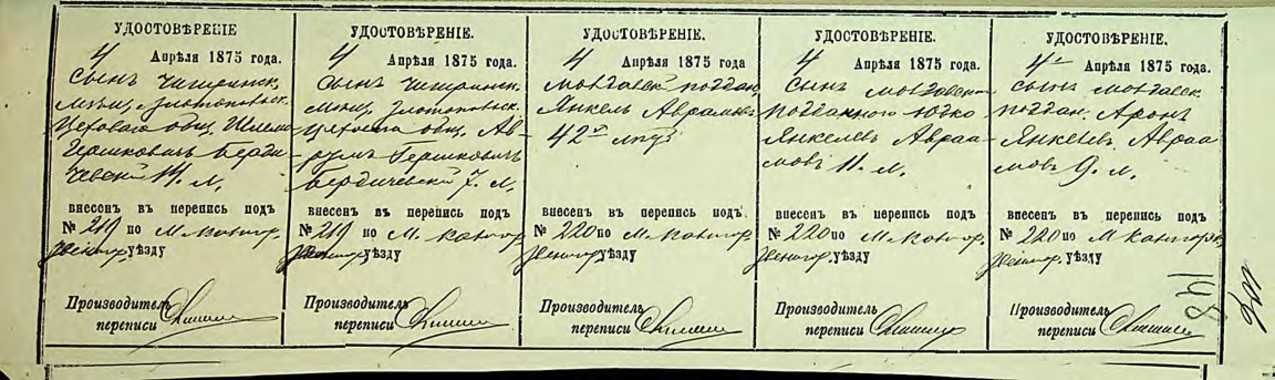 УДОСТОВѢРЕНІЕ
4 Апрѣля 1875 года.
Сынъ Чигиринск.
мѣщ. Златопольск.
Цеховаго общ. Шлема
Гершковичъ Берди-
чевскій л.
внесенъ въ перепись подъ
№ 219 по М. Катер.
Звенигор. уѣзду
Производитель
переписи
УДОСТОВѢРЕНІЕ.
4 Апрѣля 1875 года.
Сынъ Чигиринск.
мѣщ. Златопольск.
Цеховаго общ. Ав-
румъ Гершковичъ
Бердичевскій 7. л.
внесенъ въ перепись подъ
№ 219 по М.
Звенигор. уѣзду
Производитель
переписи
УДОСТОВѢРЕНІЕ.
4 Апрѣля 1875 года
Молдавск. поддан.
Янкель Аврамовъ
42х лѣтъ
внесенъ въ перепись подъ
№ 220 по М.
Звенигор. уѣзду
Производитель
переписи
УДОСТОВѢРЕНІЕ.
4 Апрѣля 1875 года.
Сынъ Молдавск.
подданного Юдко
Янкелевъ Авраа-
мовъ 11. л.
внесенъ въ перепись подъ
№ 220 по М.
Звенигор. уѣзду
Производитель
переписи
УДОСТОВѢРЕНІЕ.
4 Апрѣля 1875 года.
Сынъ Молдавск.
поддан. Аронъ
Янкелевъ Авраа-
мовъ 9. л.
внесенъ въ перепись подъ
№ 220 по М
Звенигор. уѣзду
Производитель
переписи
148